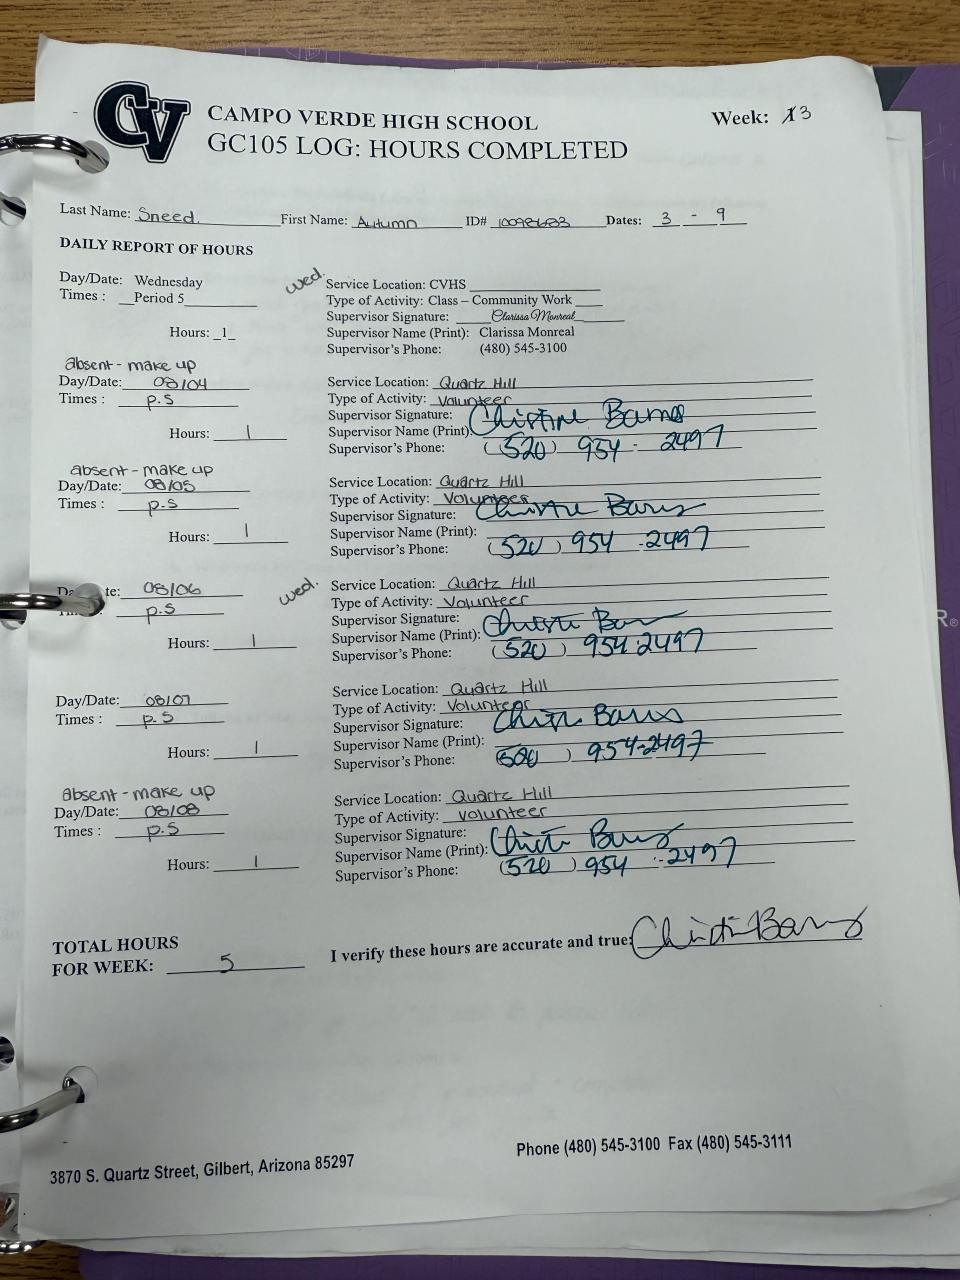 CV
CAMPO VERDE HIGH SCHOOL
Week: 3
GC105 LOG: HOURS COMPLETED
Last Name: Sneed First Name: Autumn ID# Dates: 3 - 9
DAILY REPORT OF HOURS
wed.
Day/Date: Wednesday
Times : Period 5
Hours: 1
Service Location: CVHS
Type of Activity: Class – Community Work
Supervisor Signature: Clarissa Monreal
Supervisor Name (Print): Clarissa Monreal
Supervisor's Phone: (480) 545-3100
absent - make up
Day/Date: 08/04
Times : p.5
Hours: 1
Service Location: Quartz Hill
Type of Activity: Volunteer
Supervisor Signature: Christine Barnes
Supervisor Name (Print):
Supervisor's Phone: (520) 954-2497
absent - make up
Day/Date: 08/05
Times : p.5
Hours: 1
Service Location: Quartz Hill
Type of Activity: Volunteer
Supervisor Signature:
Supervisor Name (Print):
Supervisor's Phone: (520) 954-2497
wed.
08/06
p.5
Hours: 1
Service Location: Quartz Hill
Type of Activity: Volunteer
Supervisor Signature:
Supervisor Name (Print):
Supervisor's Phone: (520) 954-2497
Day/Date: 08/07
Times : p.5
Hours: 1
Service Location: Quartz Hill
Type of Activity: Volunteer
Supervisor Signature:
Supervisor Name (Print):
Supervisor's Phone: (520) 954-2497
absent - make up
Day/Date: 08/08
Times : p.5
Hours: 1
Service Location: Quartz Hill
Type of Activity: Volunteer
Supervisor Signature:
Supervisor Name (Print):
Supervisor's Phone: (520) 954-2497
TOTAL HOURS
FOR WEEK: 5
I verify these hours are accurate and true:
3870 S. Quartz Street, Gilbert, Arizona 85297
Phone (480) 545-3100 Fax (480) 545-3111